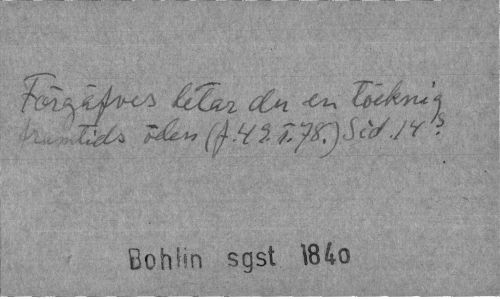 Förgäfves letar du en töcknig
framtids öden (f. 49. I. 78.) Sid. 14
Bohlin sgst 1840